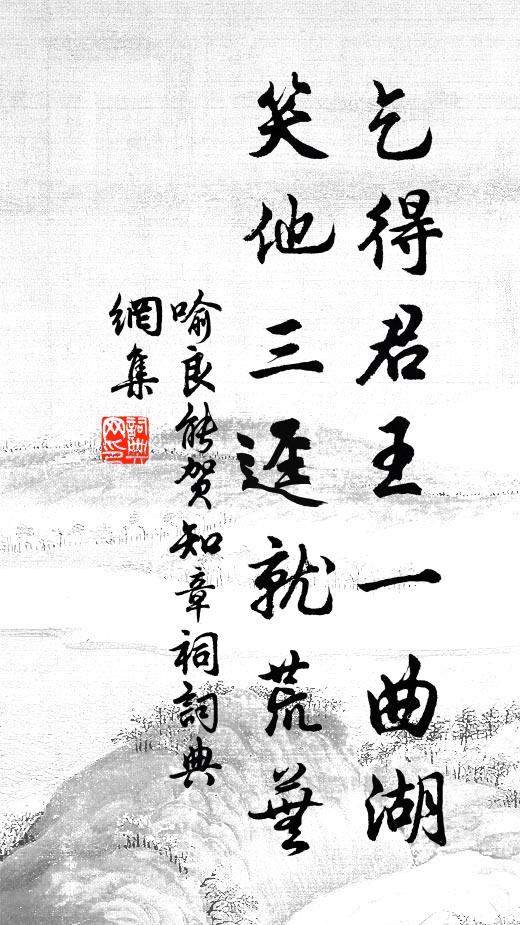 乞得君王一曲湖
笑他三逕就荒蕪
喻良能賀知章祠詞典
網集
詞典網印